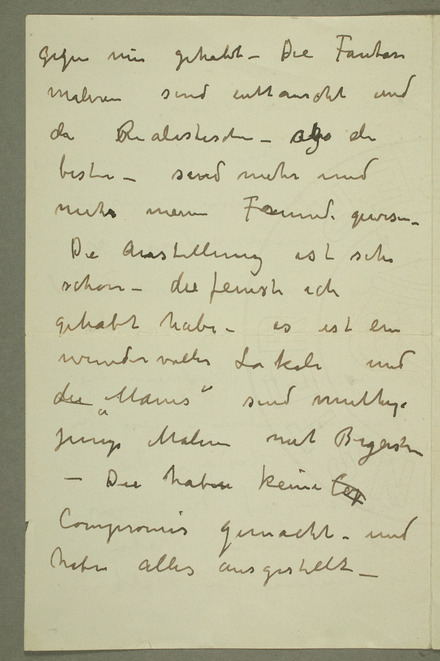 gegen mir gehabt – Die Fantasie
malerei sind enttauscht und
die Realistischen – also die
besten – sind mehr und
mehr meine Freunde gewesen –
Die Ausstellung ist sehr
schon – die feinste ich
gehabt habe – es ist ein
wundervolles Lokale und
die "Manes" sind muthige
junge Maler mit Begeistern
– Die haben keine
Compromis gemacht – und
haben alles ausgestellt –